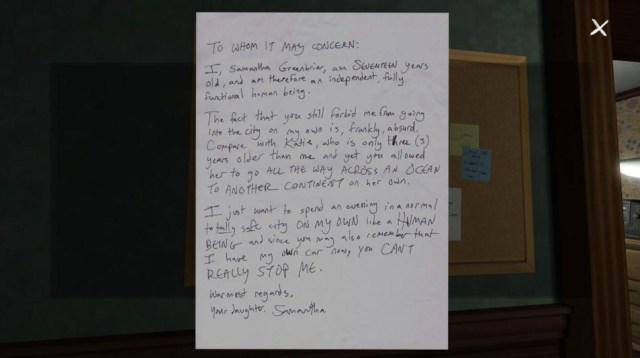 TO WHOM IT MAY CONCERN:
I, Samantha Greenbriar, am SEVENTEEN years
old, and am therefore an independent, fully
functional human being.
The fact that you still forbid me from going
into the city on my own is, frankly, absurd.
Compare with Katie, who is only three (3)
years older than me and yet you allowed
her to go ALL THE WAY ACROSS AN OCEAN
TO ANOTHER CONTINENT on her own.
I just want to spend an evening in a normal
totally safe city ON MY OWN like a HUMAN
BEING and since you may also remember that
I have my own car now, you CAN'T
REALLY STOP ME.
Warmest regards,
your daughter, Samantha